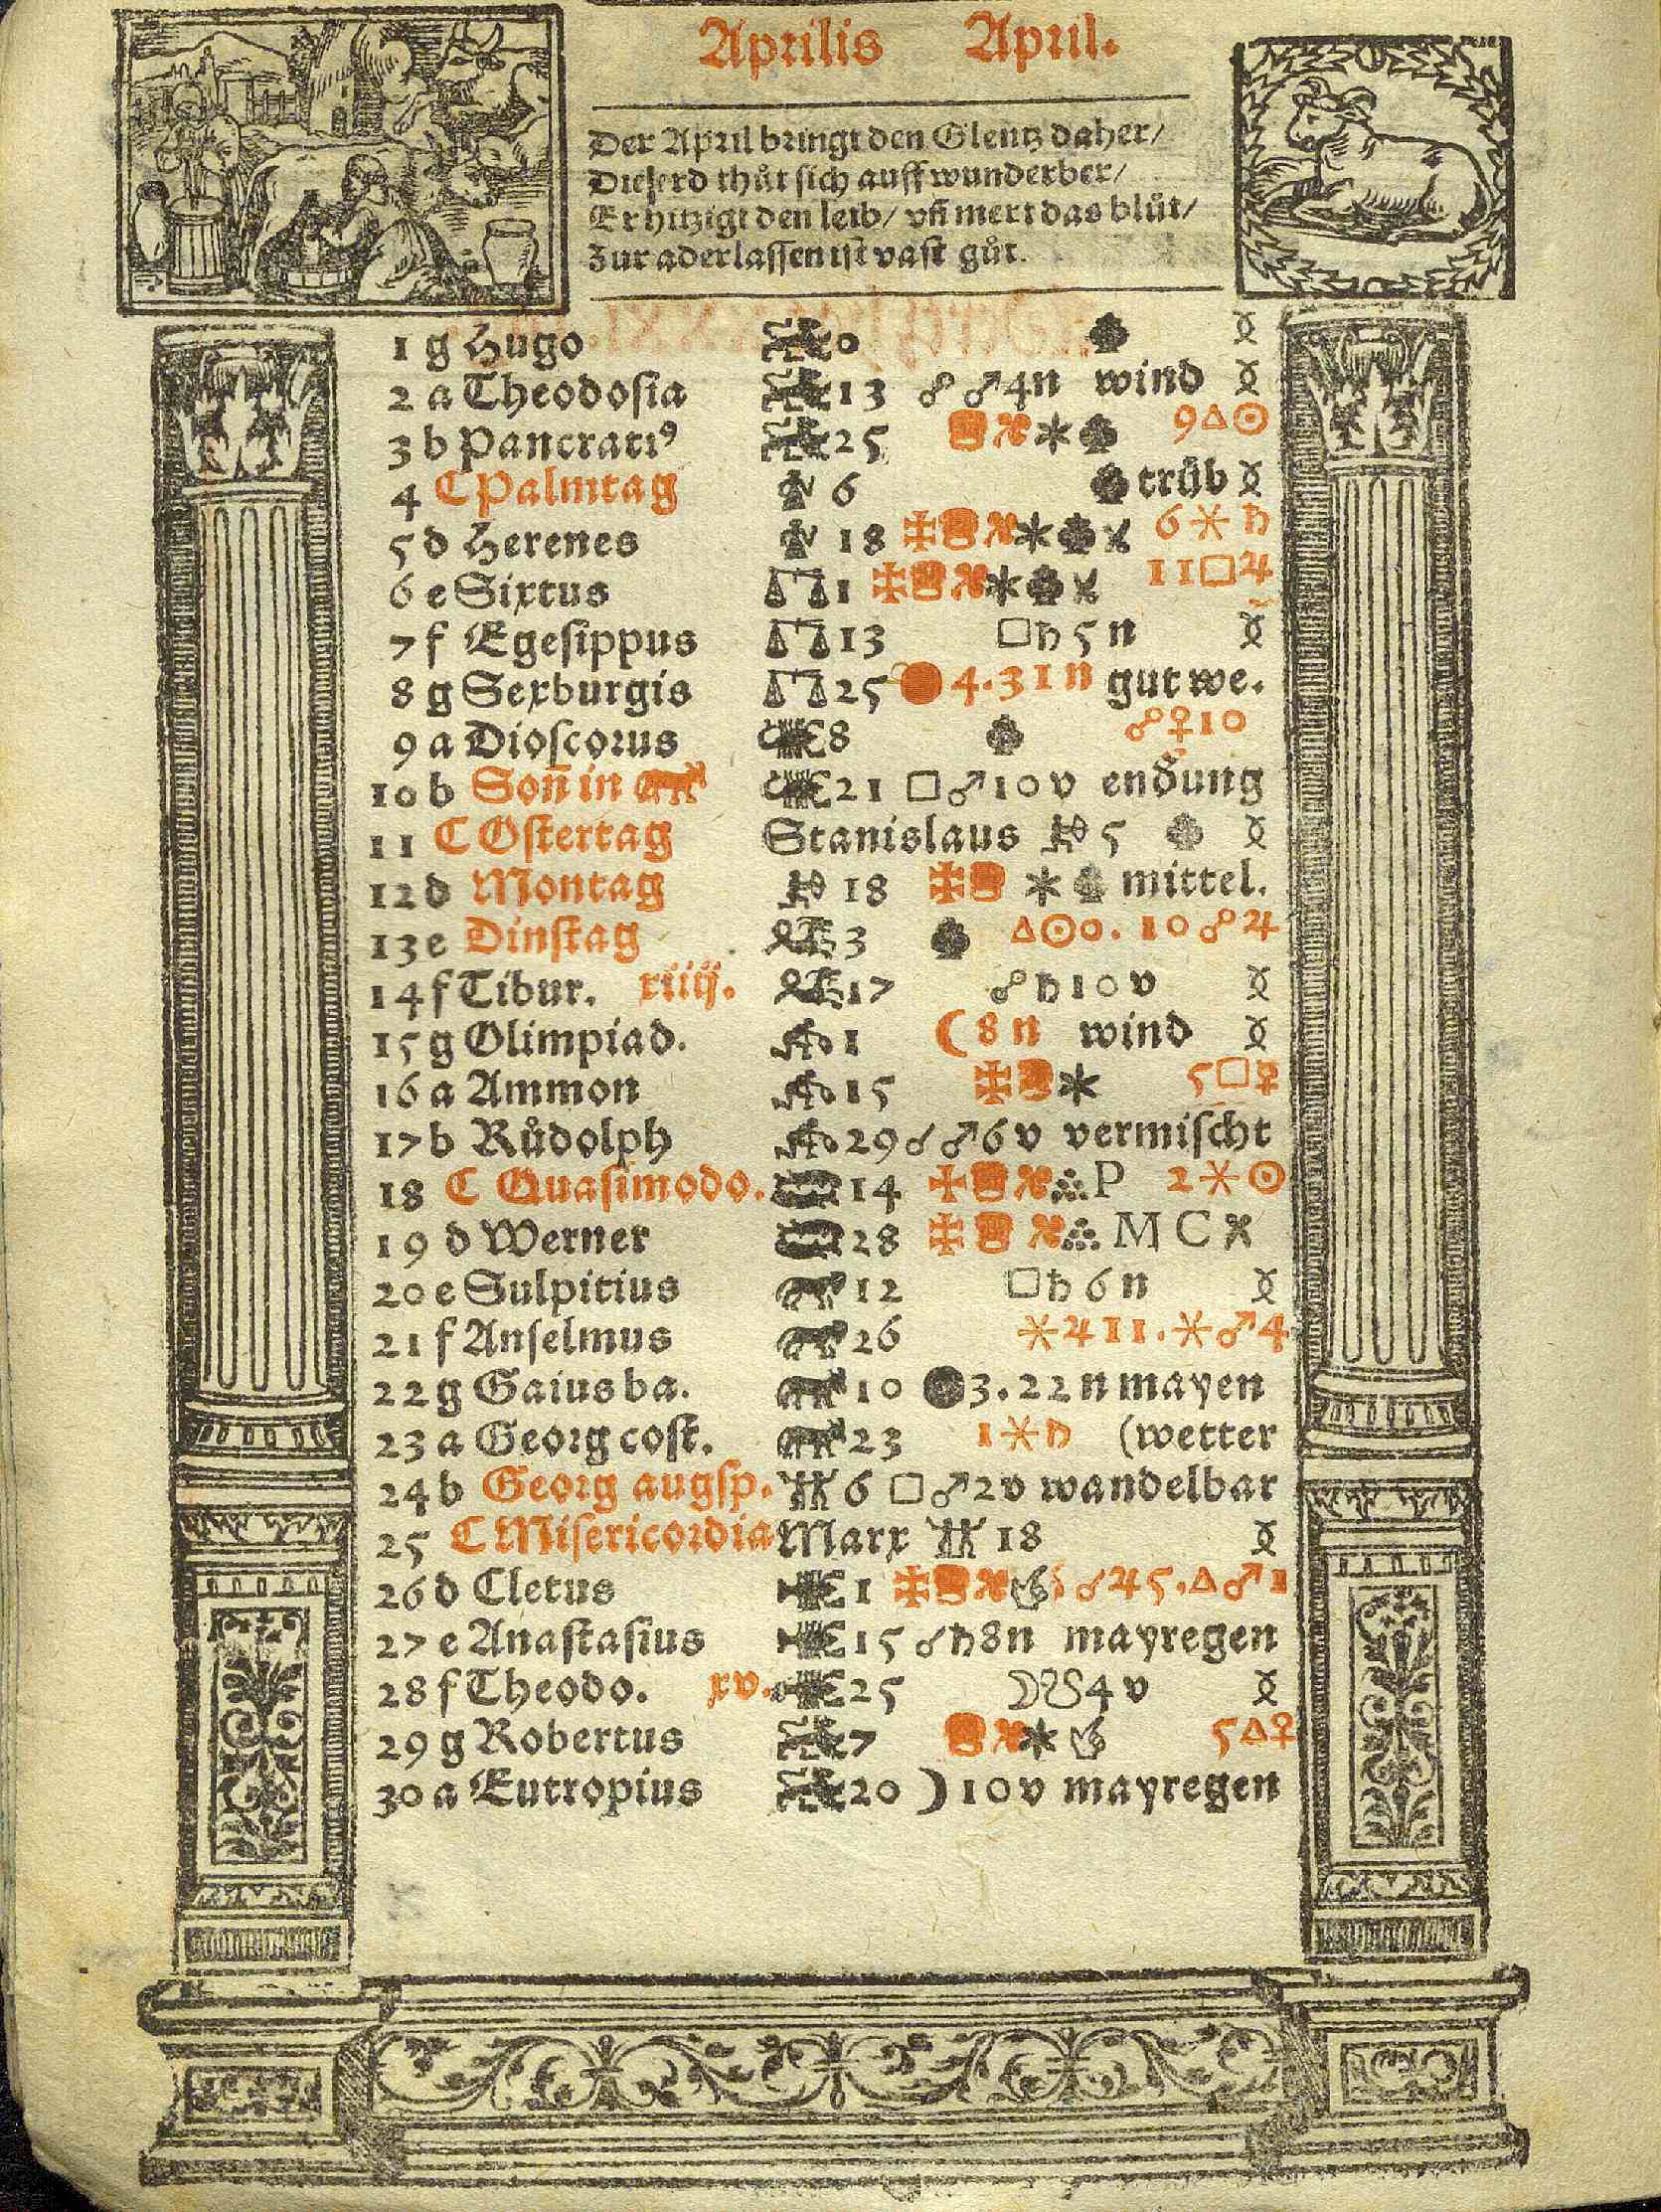 Aprilis April.
Der April bringt den Glentz daher/
Die erd thůt sich auff wunderber/
Er hitzigt den leib/ vñ mert das blůt/
Zur aderlassen ist vast gůt.
1 g Hugo 0
2 a Theodosia 13 ☍ ♂ 4 n wind
3 b Pancratiꝰ 25 9 △ ☉
4 C Palmtag 6 trüb
5 d Herenes 18 6 ⚹ ♄
6 e Sixtus 1 11 □ ♃
7 f Egesippus 13 □ ♄ 5 n
8 g Sexburgis 25 4.31 n gut we.
9 a Dioscorus 8 ☍ ♀ 10
10 b Soñ in 21 □ ♂ 10 v endung
11 C Ostertag Stanislaus 5
12 d Montag 18 mittel.
13 e Dinstag 3 △ ☉ 0. 10 ☍ ♃
14 f Tibur. xiiij. 17 ☍ ♄ 10 v
15 g Olimpiad. 1 ( 8 n wind
16 a Ammon 15 5 □ ♀
17 b Růdolph 29 ☌ ♂ 6 v vermischt
18 C Quasimodo. 14 P 2 ⚹ ☉
19 d Werner 28 M C
20 e Sulpitius 12 □ ♄ 6 n
21 f Anselmus 26 ⚹ ♃ 11. ⚹ ♂ 4
22 g Gaius ba. 10 3.22 n mayen
23 a Georg cost. 23 1 ⚹ ♄ (wetter
24 b Georg augsp. 6 □ ♂ 2 v wandelbar
25 C Misericordia Marx 18
26 d Cletus 1 ☌ ♃ 5. △ ♂ 1
27 e Anastasius 15 ☌ ♄ 8 n mayregen
28 f Theodo. xv. 25 ☽ ☋ 4 v
29 g Robertus 7 5 △ ♀
30 a Eutropius 20 ) 10 v mayregen